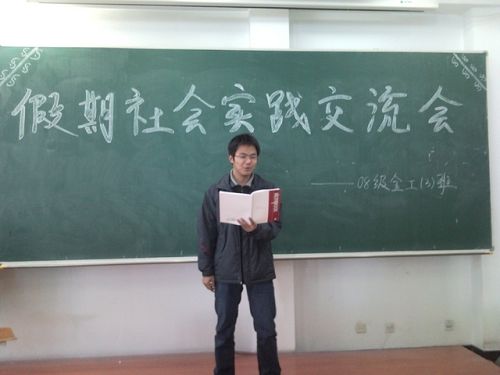 假期社会实践交流会
——08级金工(3)班